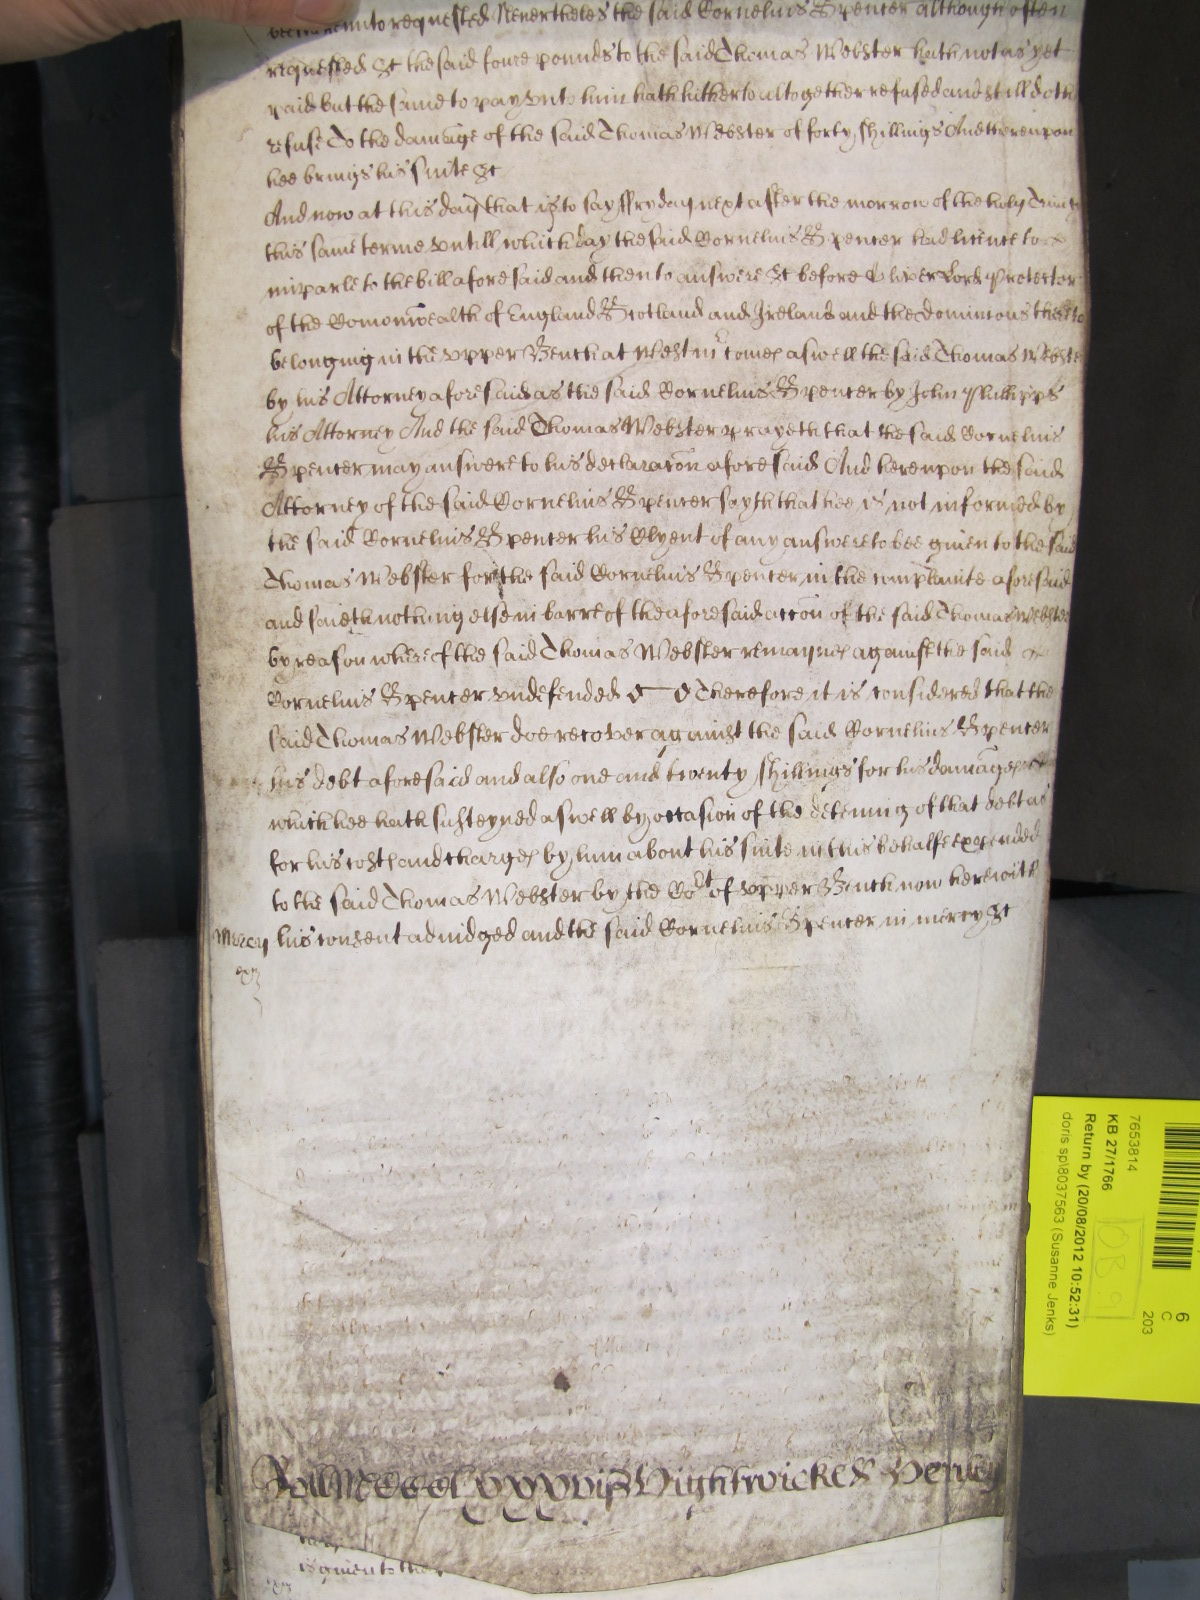 thereunto requested Neverthelesse the said Cornelius Spencer although often
requested &c the said foure pounds to the said Thomas Webster hath not as yet
paid but the same to pay unto him hath hitherto altogether refused and still doth
refuse To the damage of the said Thomas Webster of forty shillings And thereupon
hee brings his suite &c
And now at this day that is to say ffryday next after the morrow of the holy Trinity
this same terme untill which day the said Cornelius Spencer had licence to
imparle to the bill aforesaid and then to answere &c before Oliver Lord Protector
of the Comonwealth of England Scotland and Ireland and the dominions thereto
belonging in the upper Bench at Westm comes aswell the said Thomas Webster
by his Attorney aforesaid as the said Cornelius Spencer by John Phillipps
his Attorney And the said Thomas Webster prayeth that the said Cornelius
Spencer may answere to his declaracon aforesaid And hereupon the said
Attorney of the said Cornelius Spencer sayth that hee is not informed by
the said Cornelius Spencer his Clyent of any answere to bee given to the said
Thomas Webster for the said Cornelius Spencer in the complainte aforesaid
and saieth nothing else in barre of the aforesaid accon of the said Thomas Webster
by reason whereof the said Thomas Webster remaynes against the said
Cornelius Spencer undefended Therefore it is considered that the
said Thomas Webster doe recover against the said Cornelius Spencer
his debt aforesaid and also one and twenty shillings for his damages
which hee hath susteyned aswell by occasion of the deteining of that debt as
for his costes and charges by him about his suite in this behalfe expended
to the said Thomas Webster by the Cort of upper Bench now here with
Mercy his consent adiudged and the said Cornelius Spencer in mercy &c
Roll
is given to the
7653814
KB 27/1766
Return by (20/08/2012 10:52:31)
doris sp\8037563 (Susanne Jenks)
6
C
203